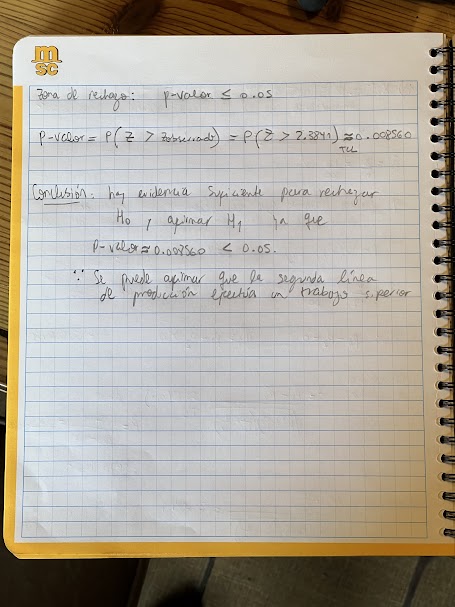 m
sc
Zona de rechazo: p-valor ≤ 0.05
P-valor = P(Z > Zobservado) = P(Z > 2.3841) ≈ 0.008560
TCL
Conclusión: hay evidencia suficiente para rechazar
H0 y afirmar H1 ya que
P-valor ≈ 0.008560 < 0.05.
∵ Se puede afirmar que la segunda línea
de producción efectúa un trabajo superior